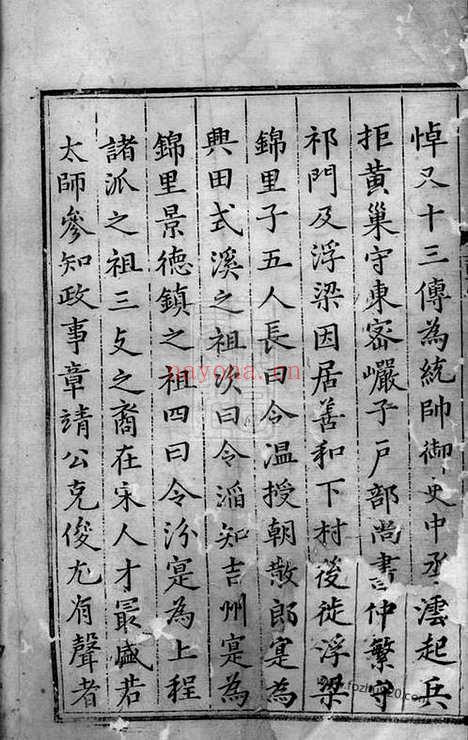 悼又十三傳為統帥御史中丞澐起兵
拒黃巢守東密巖子戶部尚書仲繁守
祁門及浮梁因居善和下村後徙浮梁
錦里子五人長曰令溫授朝散郎寔為
興田式溪之祖次曰令滔知吉州寔為
錦里景德鎮之祖四曰令汾寔為上程
諸派之祖三支之裔在宋人才最盛若
太師參知政事章靖公克俊尤有聲者
nayona.cn